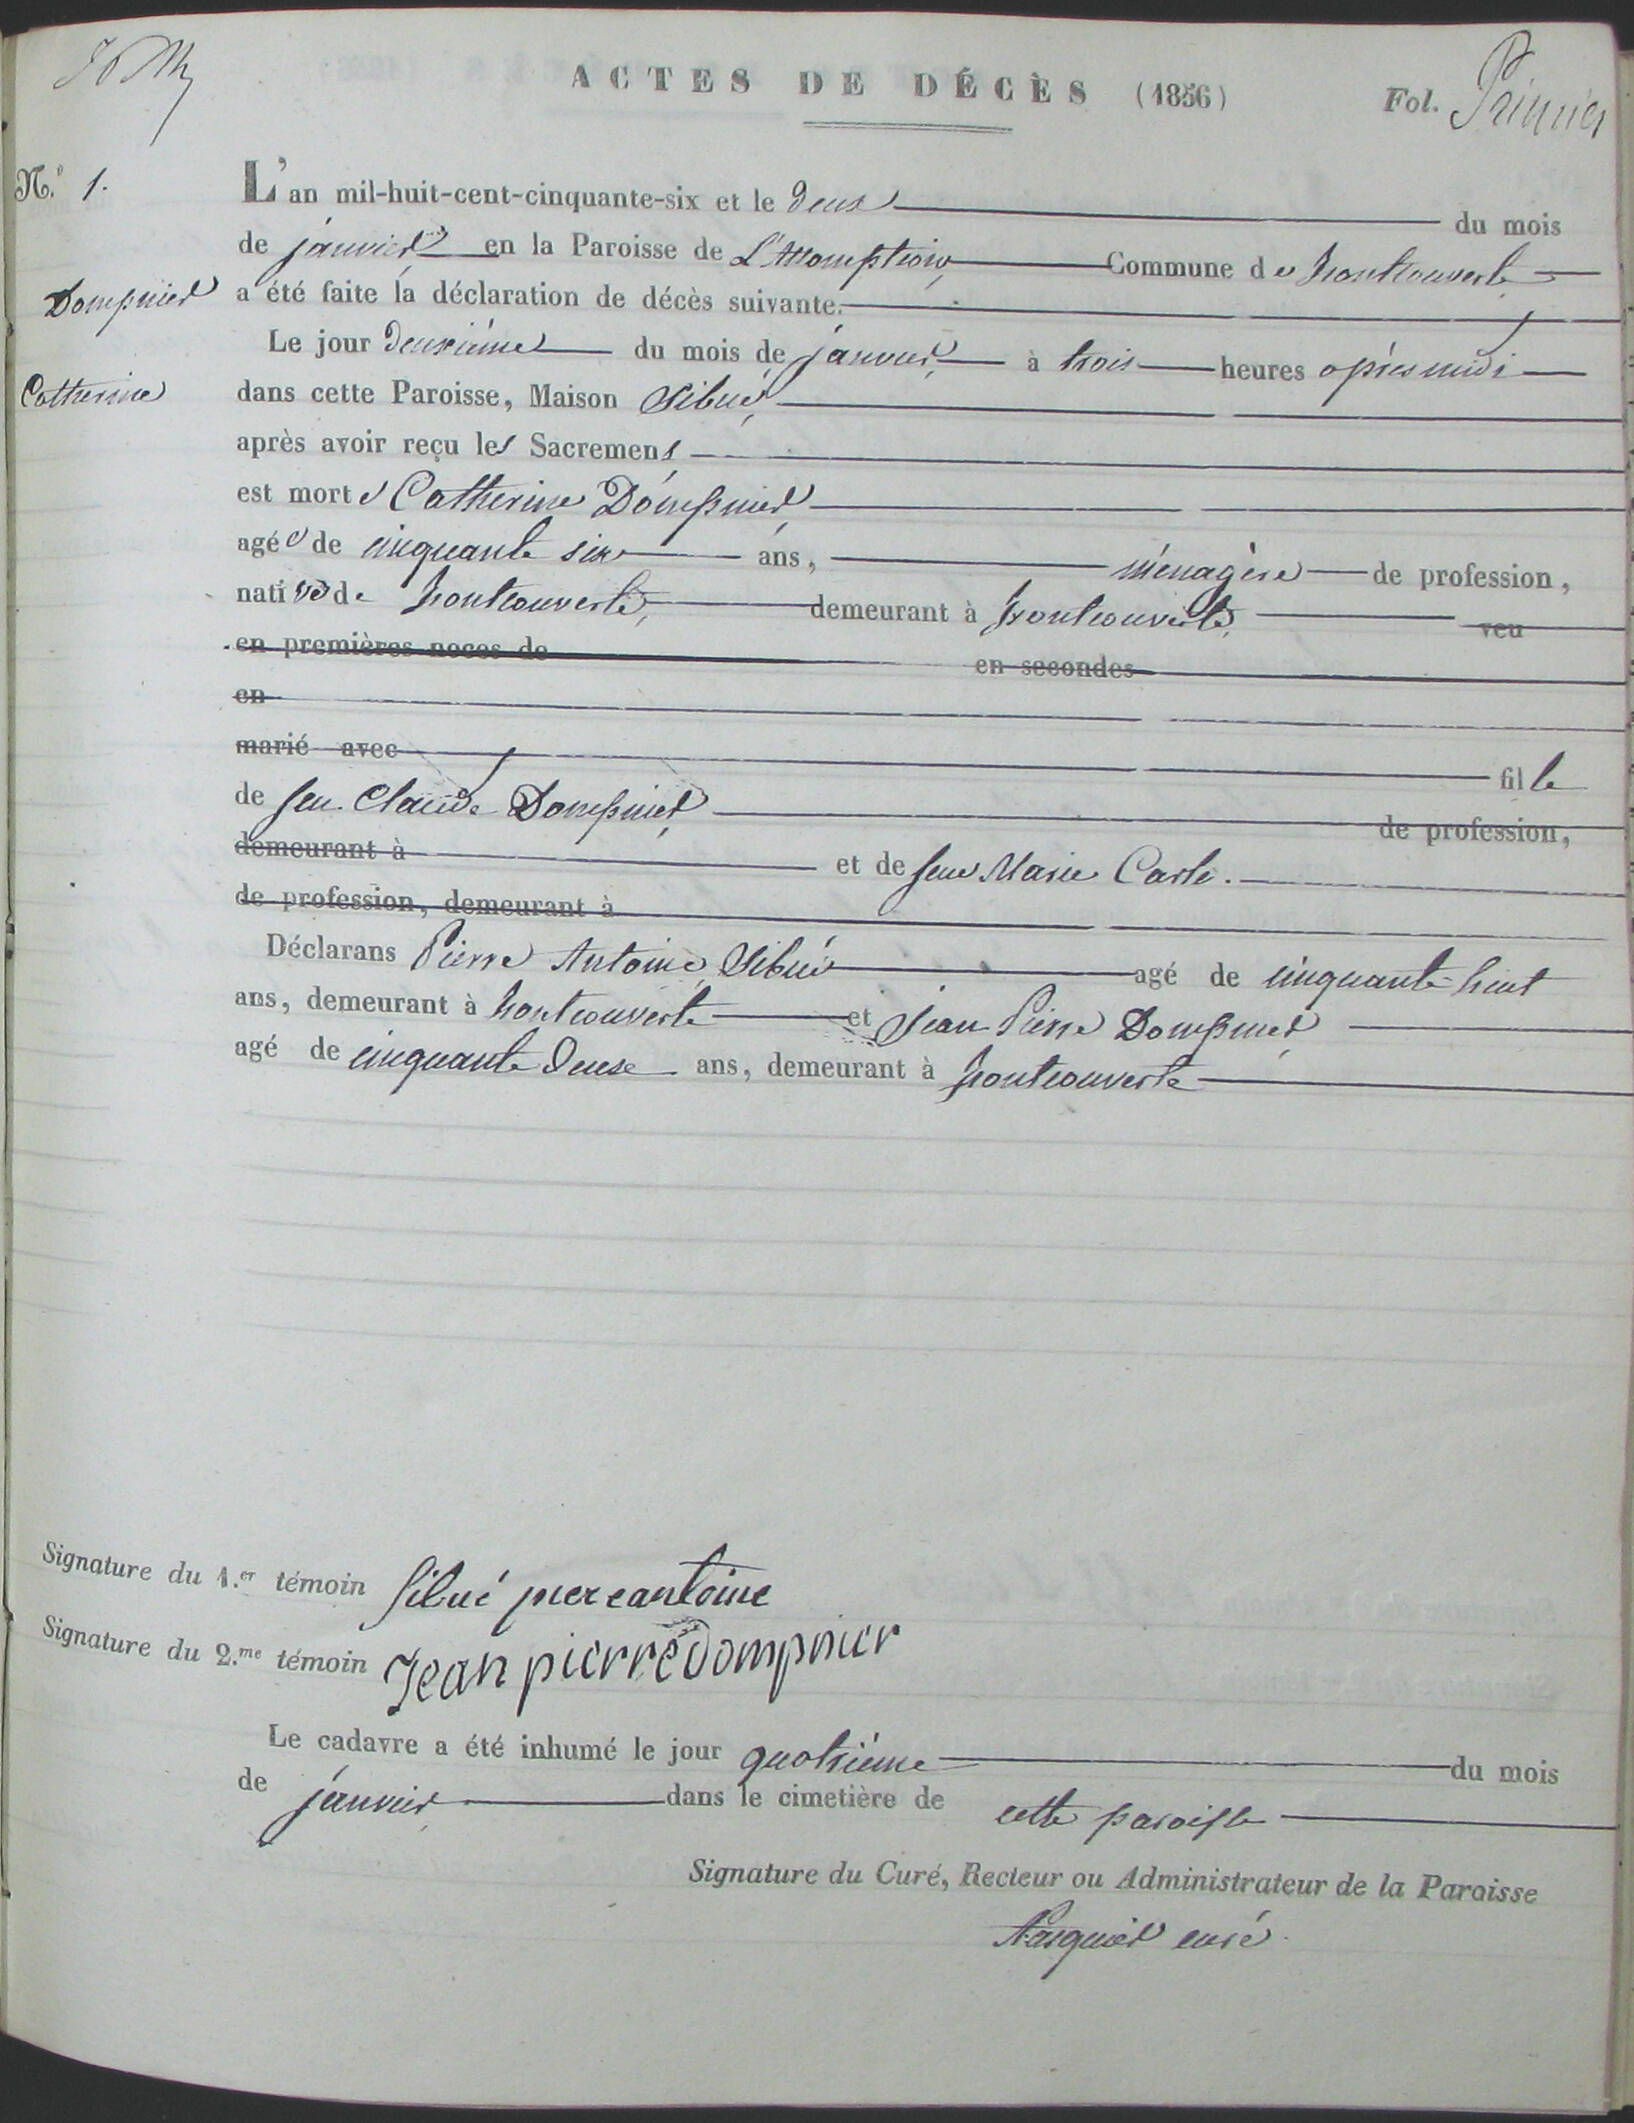 ACTES DE DÉCÈS (1856)
Fol. Primier
N.° 1.
L'an mil-huit-cent-cinquante-six et le deux du mois
de janvier en la Paroisse de L'Assomption Commune de Fontcouverte
Dompnier
a été faite la déclaration de décès suivante.
Le jour deuxième du mois de janvier à trois heures après midi
Catherine
dans cette Paroisse, Maison Sibué
après avoir reçu les Sacremens
est morte Catherine Dompnier
agée de cinquante six ans, ménagère de profession,
native de Fontcouverte, demeurant à Fontcouverte veu
en premières noces de en secondes
en
marié avec fille
de feu Claude Dompnier de profession,
demeurant à et de feue Marie Carle.
de profession, demeurant à
Déclarans Pierre Antoine Sibué agé de cinquante-huit
ans, demeurant à Fontcouverte et Jean Pierre Dompnier
agé de cinquante deux ans, demeurant à Fontcouverte
Signature du 1.er témoin Sibué piereantoine
Signature du 2.me témoin Jean pierre dompnier
Le cadavre a été inhumé le jour quatrième du mois
de janvier dans le cimetière de cette paroisse
Signature du Curé, Recteur ou Administrateur de la Paroisse
curé